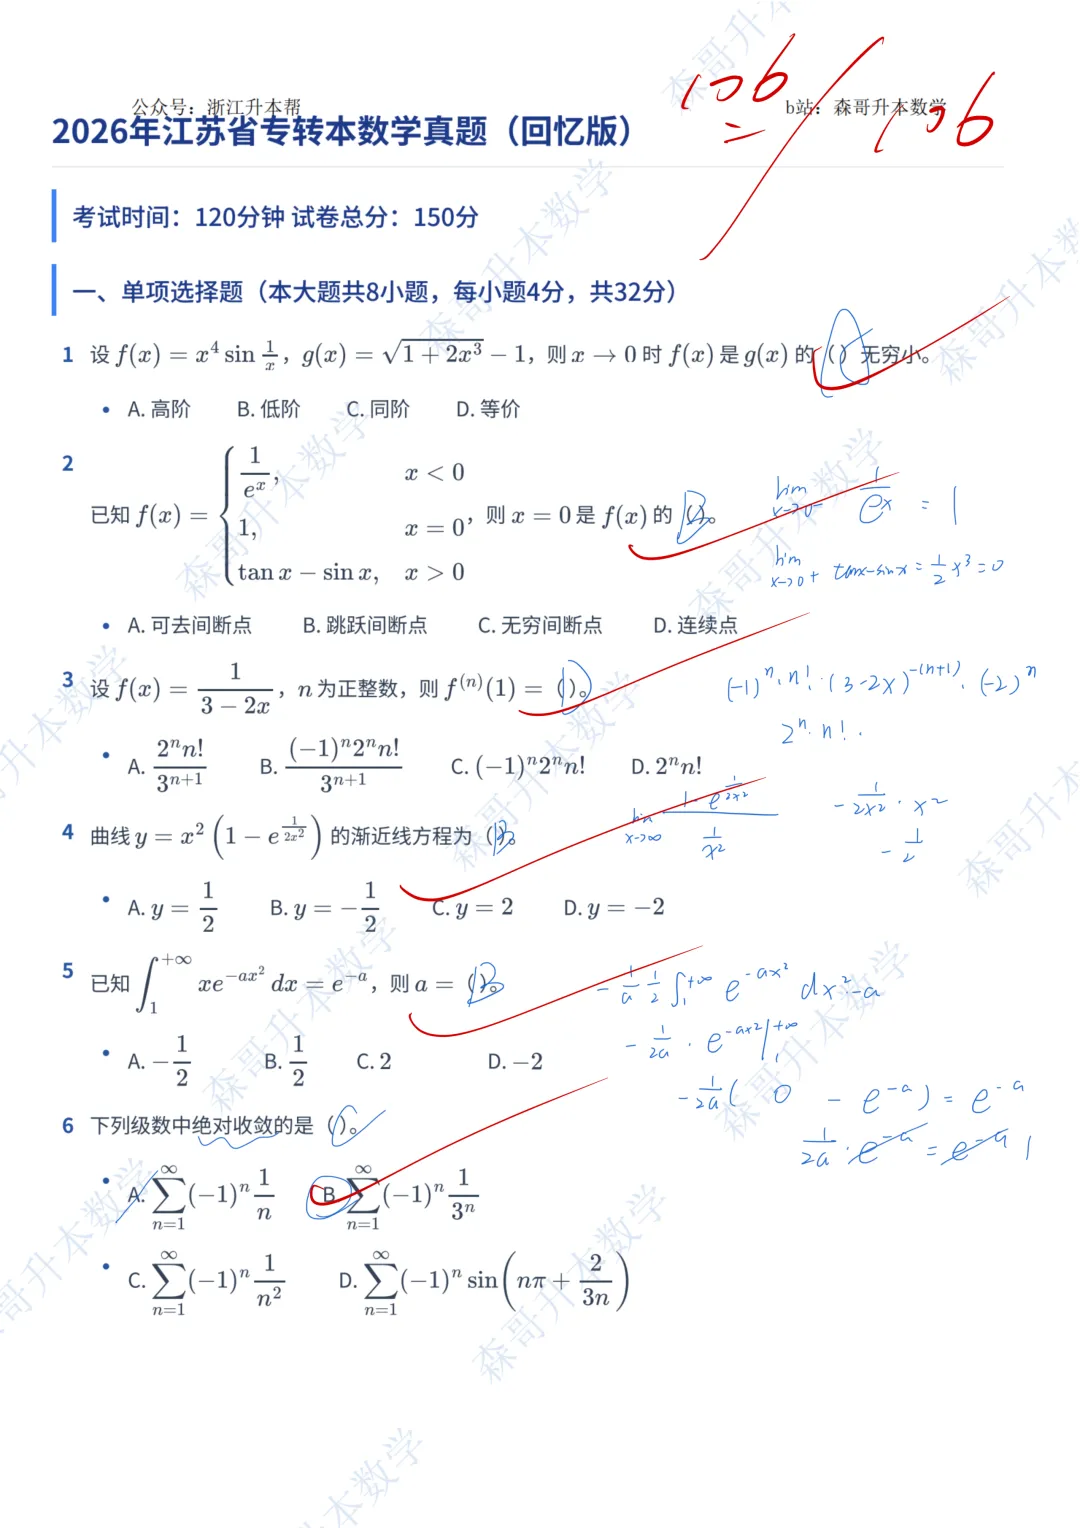 公众号：浙江升本帮
b站：森哥升本数学
106/106
2026年江苏省专转本数学真题（回忆版）
考试时间：120分钟 试卷总分：150分
一、单项选择题（本大题共8小题，每小题4分，共32分）
1 设 f(x) = x^4 sin 1/x，g(x) = √(1 + 2x^3) − 1，则 x → 0 时 f(x) 是 g(x) 的（）无穷小。
• A. 高阶 B. 低阶 C. 同阶 D. 等价
2 已知 f(x) = { 1/e^x, x < 0
1, x = 0
tan x − sin x, x > 0
，则 x = 0 是 f(x) 的（）。 B
lim x→0− 1/e^x = 1
lim x→0+ tanx−sinx = 1/2 x^3 = 0
• A. 可去间断点 B. 跳跃间断点 C. 无穷间断点 D. 连续点
3 设 f(x) = 1/(3 − 2x)，n 为正整数，则 f^(n)(1) = （）。 D
(−1)^n · n! · (3−2x)^−(n+1) · (−2)^n
2^n · n! ·
• A. 2^n n!/3^(n+1) B. (−1)^n 2^n n!/3^(n+1) C. (−1)^n 2^n n! D. 2^n n!
4 曲线 y = x^2 (1 − e^(1/(2x^2))) 的渐近线方程为（）。 B
lim x→∞ (1 − e^(1/(2x^2)))/(1/x^2)
− 1/(2x^2) · x^2
− 1/2
• A. y = 1/2 B. y = −1/2 C. y = 2 D. y = −2
5 已知 ∫_1^(+∞) xe^(−ax^2) dx = e^(−a)，则 a = （）。 B
− 1/a 1/2 ∫_1^(+∞) e^(−ax^2) dx^2·−a
− 1/(2a) · e^(−ax^2) |_1^(+∞)
− 1/(2a) ( 0 − e^(−a) ) = e^(−a)
1/(2a) · e^(−a) = e^(−a) 1
• A. −1/2 B. 1/2 C. 2 D. −2
6 下列级数中绝对收敛的是（）。
• A. ∑_(n=1)^∞ (−1)^n 1/n B. ∑_(n=1)^∞ (−1)^n 1/3^n
• C. ∑_(n=1)^∞ (−1)^n 1/n^2 D. ∑_(n=1)^∞ (−1)^n sin(nπ + 2/(3n))
森哥升本数学